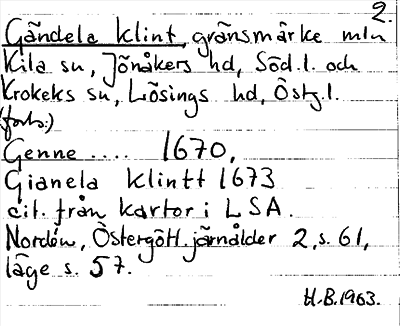 2.
Gändela klint, gränsmärke mln
Kila sn, Jönåkers hd, Söd.l. och
Krokeks sn, Lösings hd, Östg.l.
(forts.)
Genne .... 1670,
Gianela klintt 1673
cit. från kartor i LSA.
Nordén, Östergötl. järnålder 2, s. 61,
läge s. 57.
H.B. 1963.